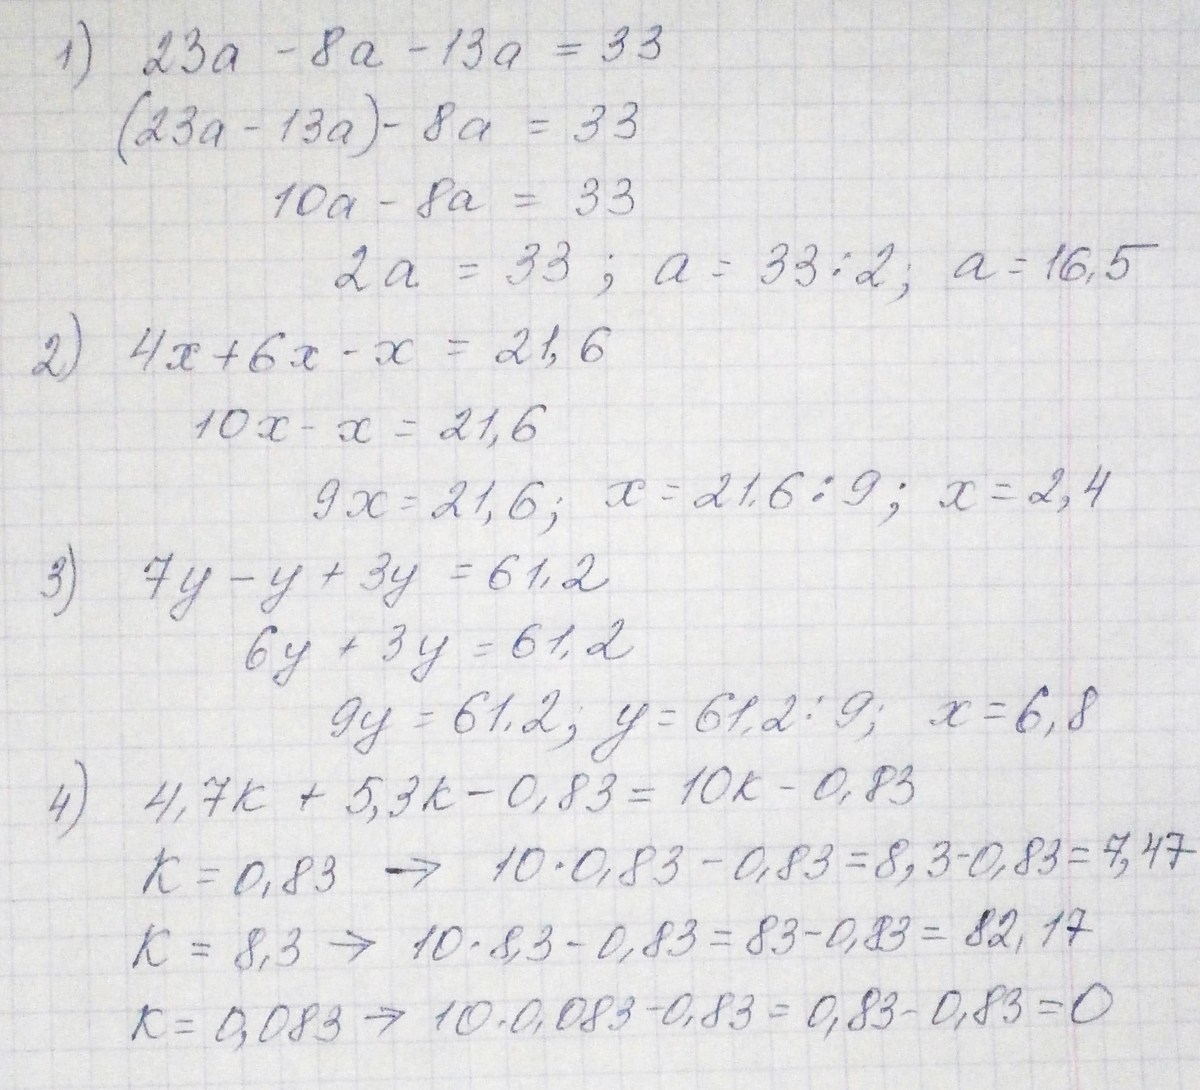 1) 23a - 8a - 13a = 33
(23a - 13a) - 8a = 33
10a - 8a = 33
2a = 33 ; a = 33 : 2; a = 16,5
2) 4x + 6x - x = 21,6
10x - x = 21,6
9x = 21,6; x = 21.6 : 9; x = 2,4
3) 7y - y + 3y = 61.2
6y + 3y = 61.2
9y = 61.2; y = 61.2 : 9; x = 6,8
4) 4,7k + 5,3k - 0,83 = 10k - 0,83
K = 0,83 → 10 · 0,83 - 0,83 = 8,3 - 0,83 = 7,47
K = 8,3 → 10 · 8,3 - 0,83 = 83 - 0,83 = 82,17
K = 0,083 → 10 · 0,083 - 0,83 = 0,83 - 0,83 = 0